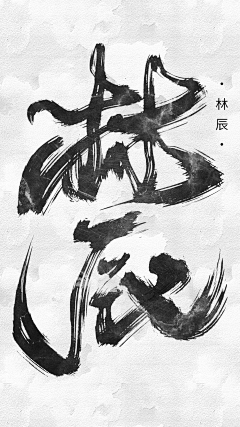 林辰
·林辰·